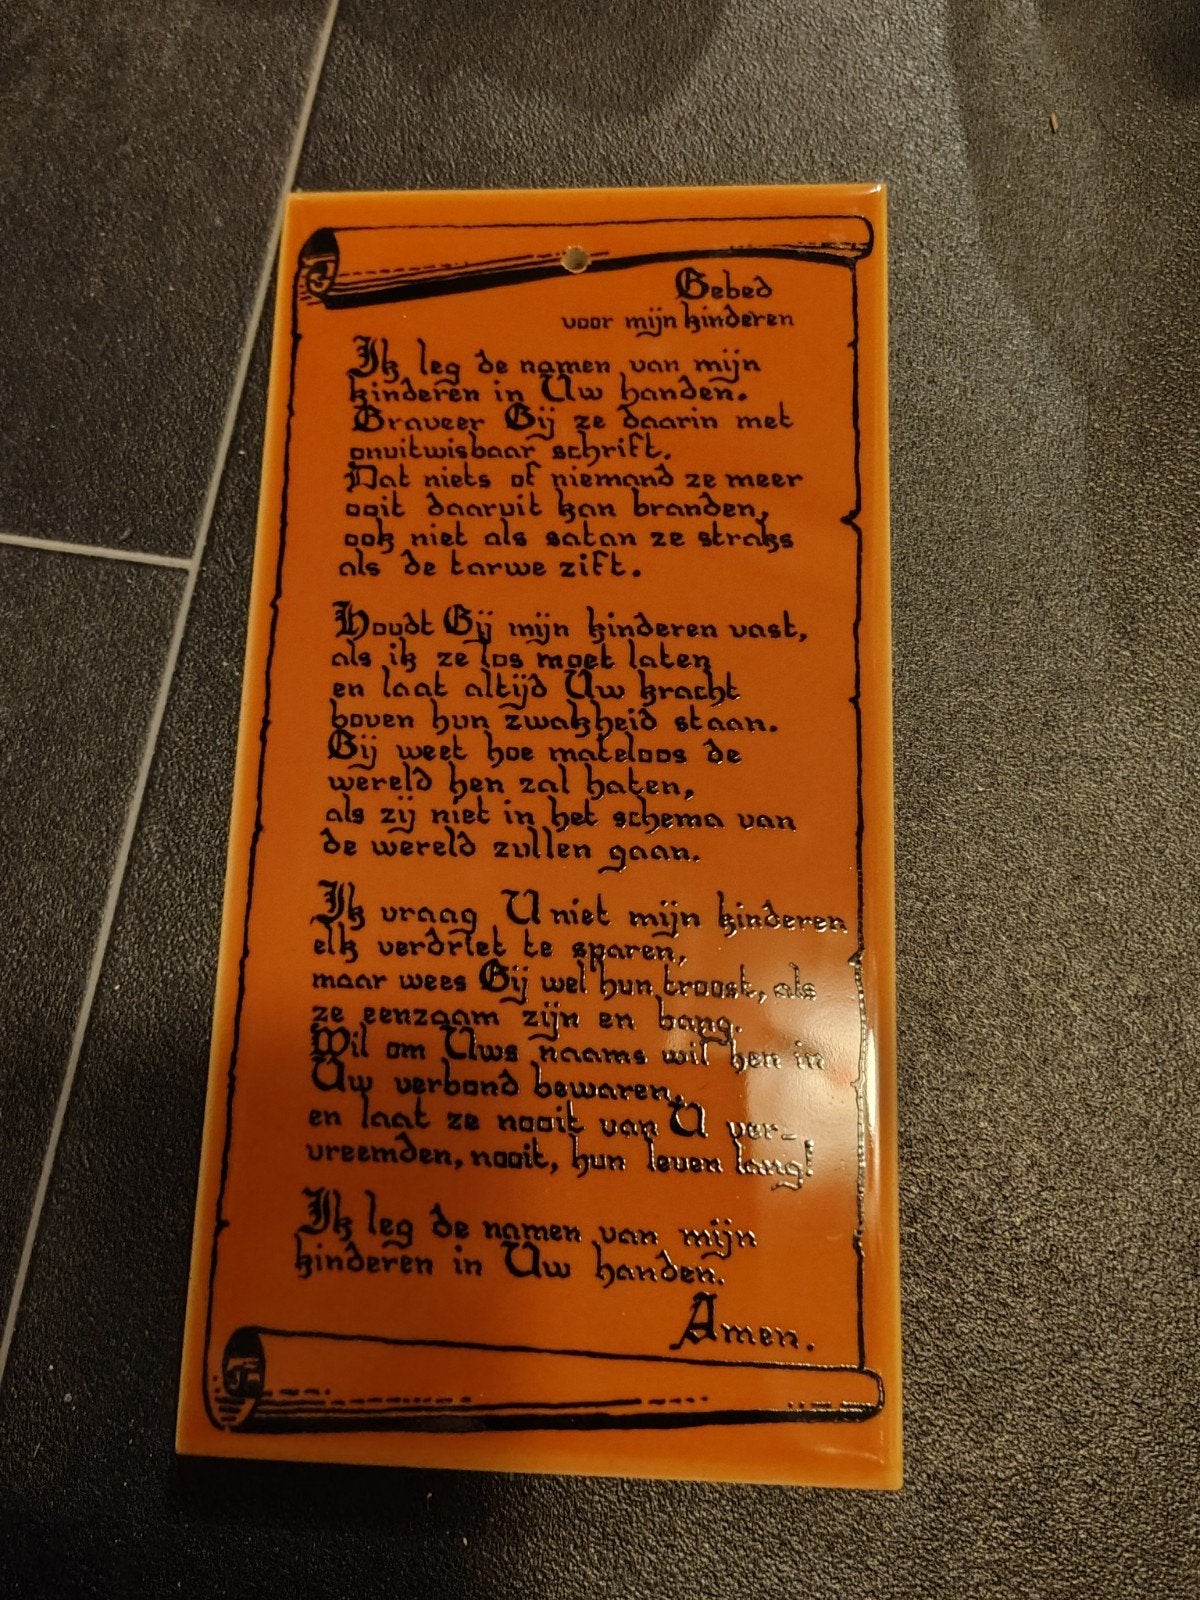 Gebed
voor mijn kinderen
Ik leg de namen van mijn
kinderen in Uw handen.
Graveer Gij ze daarin met
onuitwisbaar schrift.
Dat niets of niemand ze meer
ooit daaruit kan branden,
ook niet als satan ze straks
als de tarwe zift.
Houdt Gij mijn kinderen vast,
als ik ze los moet laten
en laat altijd Uw kracht
boven hun zwakheid staan.
Gij weet hoe mateloos de
wereld hen zal haten,
als zij niet in het schema van
de wereld zullen gaan.
Ik vraag U niet mijn kinderen
elk verdriet te sparen,
maar wees Gij wel hun troost, als
ze eenzaam zijn en bang.
Wil om Uws naams wil hen in
Uw verbond bewaren,
en laat ze nooit van U ver-
vreemden, nooit, hun leven lang!
Ik leg de namen van mijn
kinderen in Uw handen.
Amen.